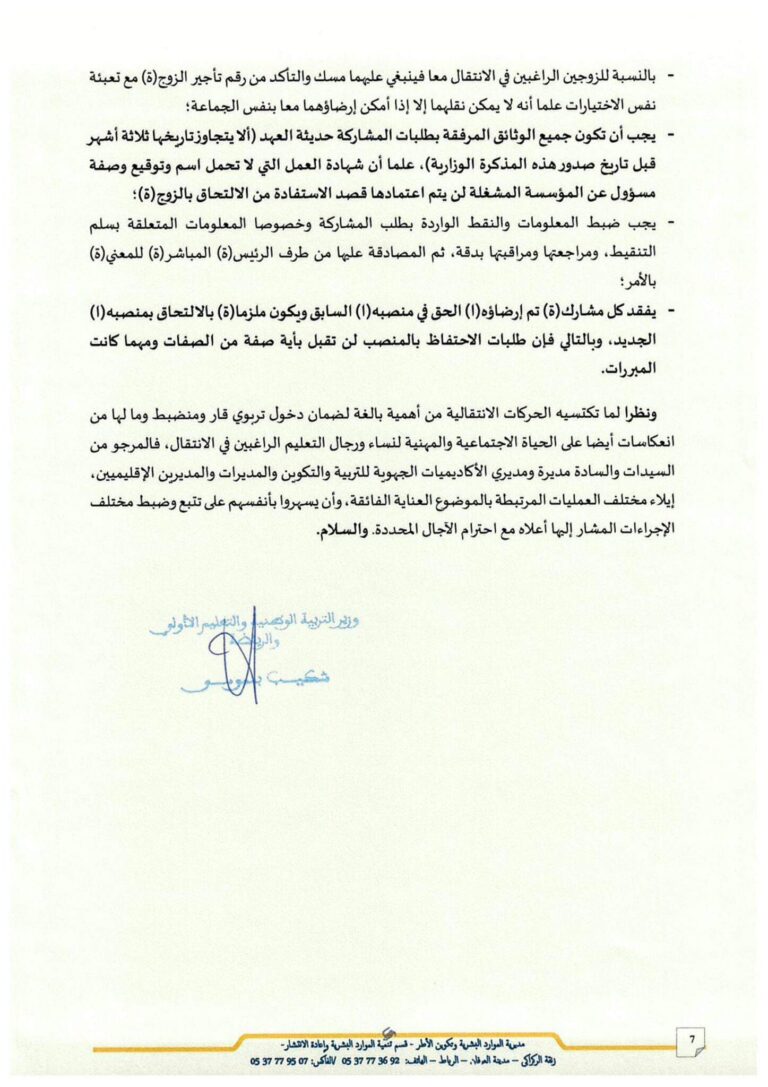 - بالنسبة للزوجين الراغبين في الانتقال معا فينبغي عليهما مسك والتأكد من رقم تأجير الزوج(ة) مع تعبئة
نفس الاختيارات علما أنه لا يمكن نقلهما إلا إذا أمكن إرضاؤهما معا بنفس الجماعة؛
- يجب أن تكون جميع الوثائق المرفقة بطلبات المشاركة حديثة العهد (ألا يتجاوز تاريخها ثلاثة أشهر
قبل تاريخ صدور هذه المذكرة الوزارية)، علما أن شهادة العمل التي لا تحمل اسم وتوقيع وصفة
مسؤول عن المؤسسة المشغلة لن يتم اعتمادها قصد الاستفادة من الالتحاق بالزوج(ة)؛
- يجب ضبط المعلومات والنقط الواردة بطلب المشاركة وخصوصا المعلومات المتعلقة بسلم
التنقيط، ومراجعتها ومراقبتها بدقة، ثم المصادقة عليها من طرف الرئيس(ة) المباشر(ة) للمعني(ة)
بالأمر؛
- يفقد كل مشارك(ة) تم إرضاؤه(ا) الحق في منصبه(ا) السابق ويكون ملزما(ة) بالالتحاق بمنصبه(ا)
الجديد، وبالتالي فإن طلبات الاحتفاظ بالمنصب لن تقبل بأية صفة من الصفات ومهما كانت
المبررات.
ونظرا لما تكتسيه الحركات الانتقالية من أهمية بالغة لضمان دخول تربوي قار ومنضبط وما لها من
انعكاسات أيضا على الحياة الاجتماعية والمهنية لنساء ورجال التعليم الراغبين في الانتقال، فالمرجو من
السيدات والسادة مديرة ومديري الأكاديميات الجهوية للتربية والتكوين والمديرات والمديرين الإقليميين،
إيلاء مختلف العمليات المرتبطة بالموضوع العناية الفائقة، وأن يسهروا بأنفسهم على تتبع وضبط مختلف
الإجراءات المشار إليها أعلاه مع احترام الآجال المحددة. والسلام.
وزير التربية الوطنية والتعليم الأولي
والرياضة
شكيب بنموسى
7
مديرية الموارد البشرية وتكوين الأطر - قسم تنمية الموارد البشرية وإعادة الانتشار-
زنقة الركراكي – مدينة العرفان – الرباط – الهاتف: 92 36 77 37 05 /الفاكس: 07 95 77 37 05